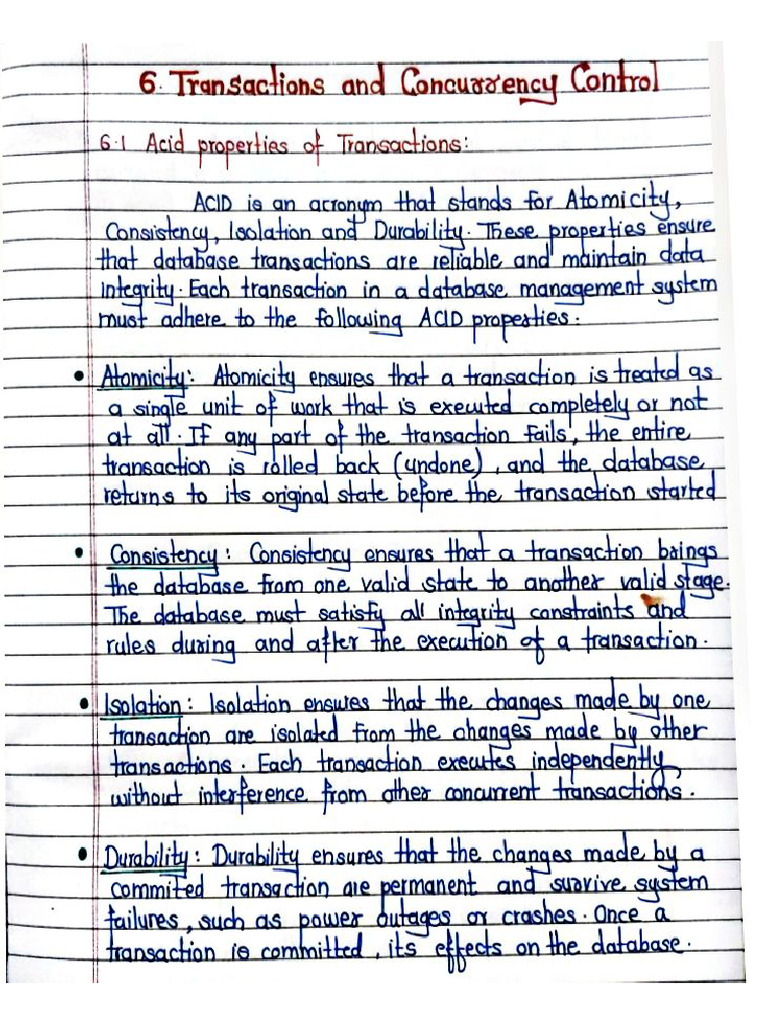 6. Transactions and Concurrency Control
6.1 Acid properties of Transactions:
ACID is an acronym that stands for Atomicity,
Consistency, Isolation and Durability. These properties ensure
that database transactions are reliable and maintain data
integrity. Each transaction in a database management system
must adhere to the following ACID properties:
• Atomicity: Atomicity ensures that a transaction is treated as
a single unit of work that is executed completely or not
at all. If any part of the transaction fails, the entire
transaction is rolled back (undone), and the database
returns to its original state before the transaction started
• Consistency: Consistency ensures that a transaction brings
the database from one valid state to another valid stage.
The database must satisfy all integrity constraints and
rules during and after the execution of a transaction.
• Isolation: Isolation ensures that the changes made by one
transaction are isolated from the changes made by other
transactions. Each transaction executes independently
without interference from other concurrent transactions.
• Durability: Durability ensures that the changes made by a
commited transaction are permanent and survive system
failures, such as power outages or crashes. Once a
transaction is committed, its effects on the database.